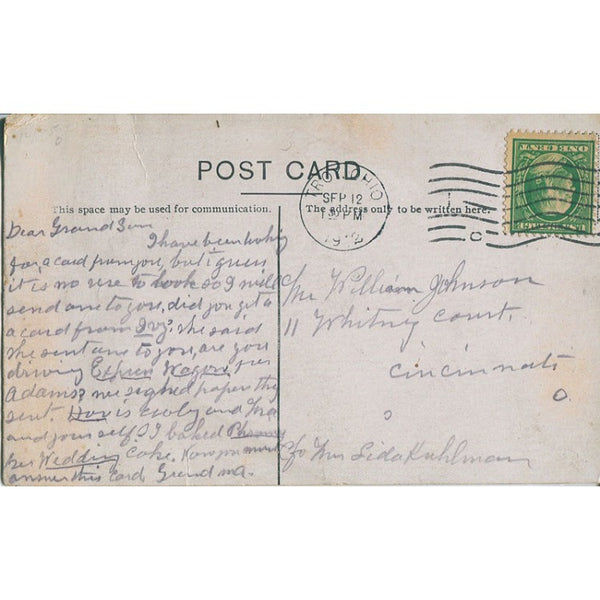 POST CARD
TROY OHIO
SEP 12
PM
1912
ONE CENT
This space may be used for communication.
The address only to be written here.
Dear Grand Son
I have been looking
for a card from you, but i guess
it is no use to look so I will
send one to you, did you get a
a card from Ivy. she said
she sent one to you, are you
driving Express Wagon, for
Adams, we signed paper they
sent. How is and Ma
and yourself. I baked
her Wedding Cake. Now you must
answer this Card. Grand ma.
Mr William Johnson
11 Whitney Court.
Cincinnati
O.
c/o Mrs Lida Kuhlman